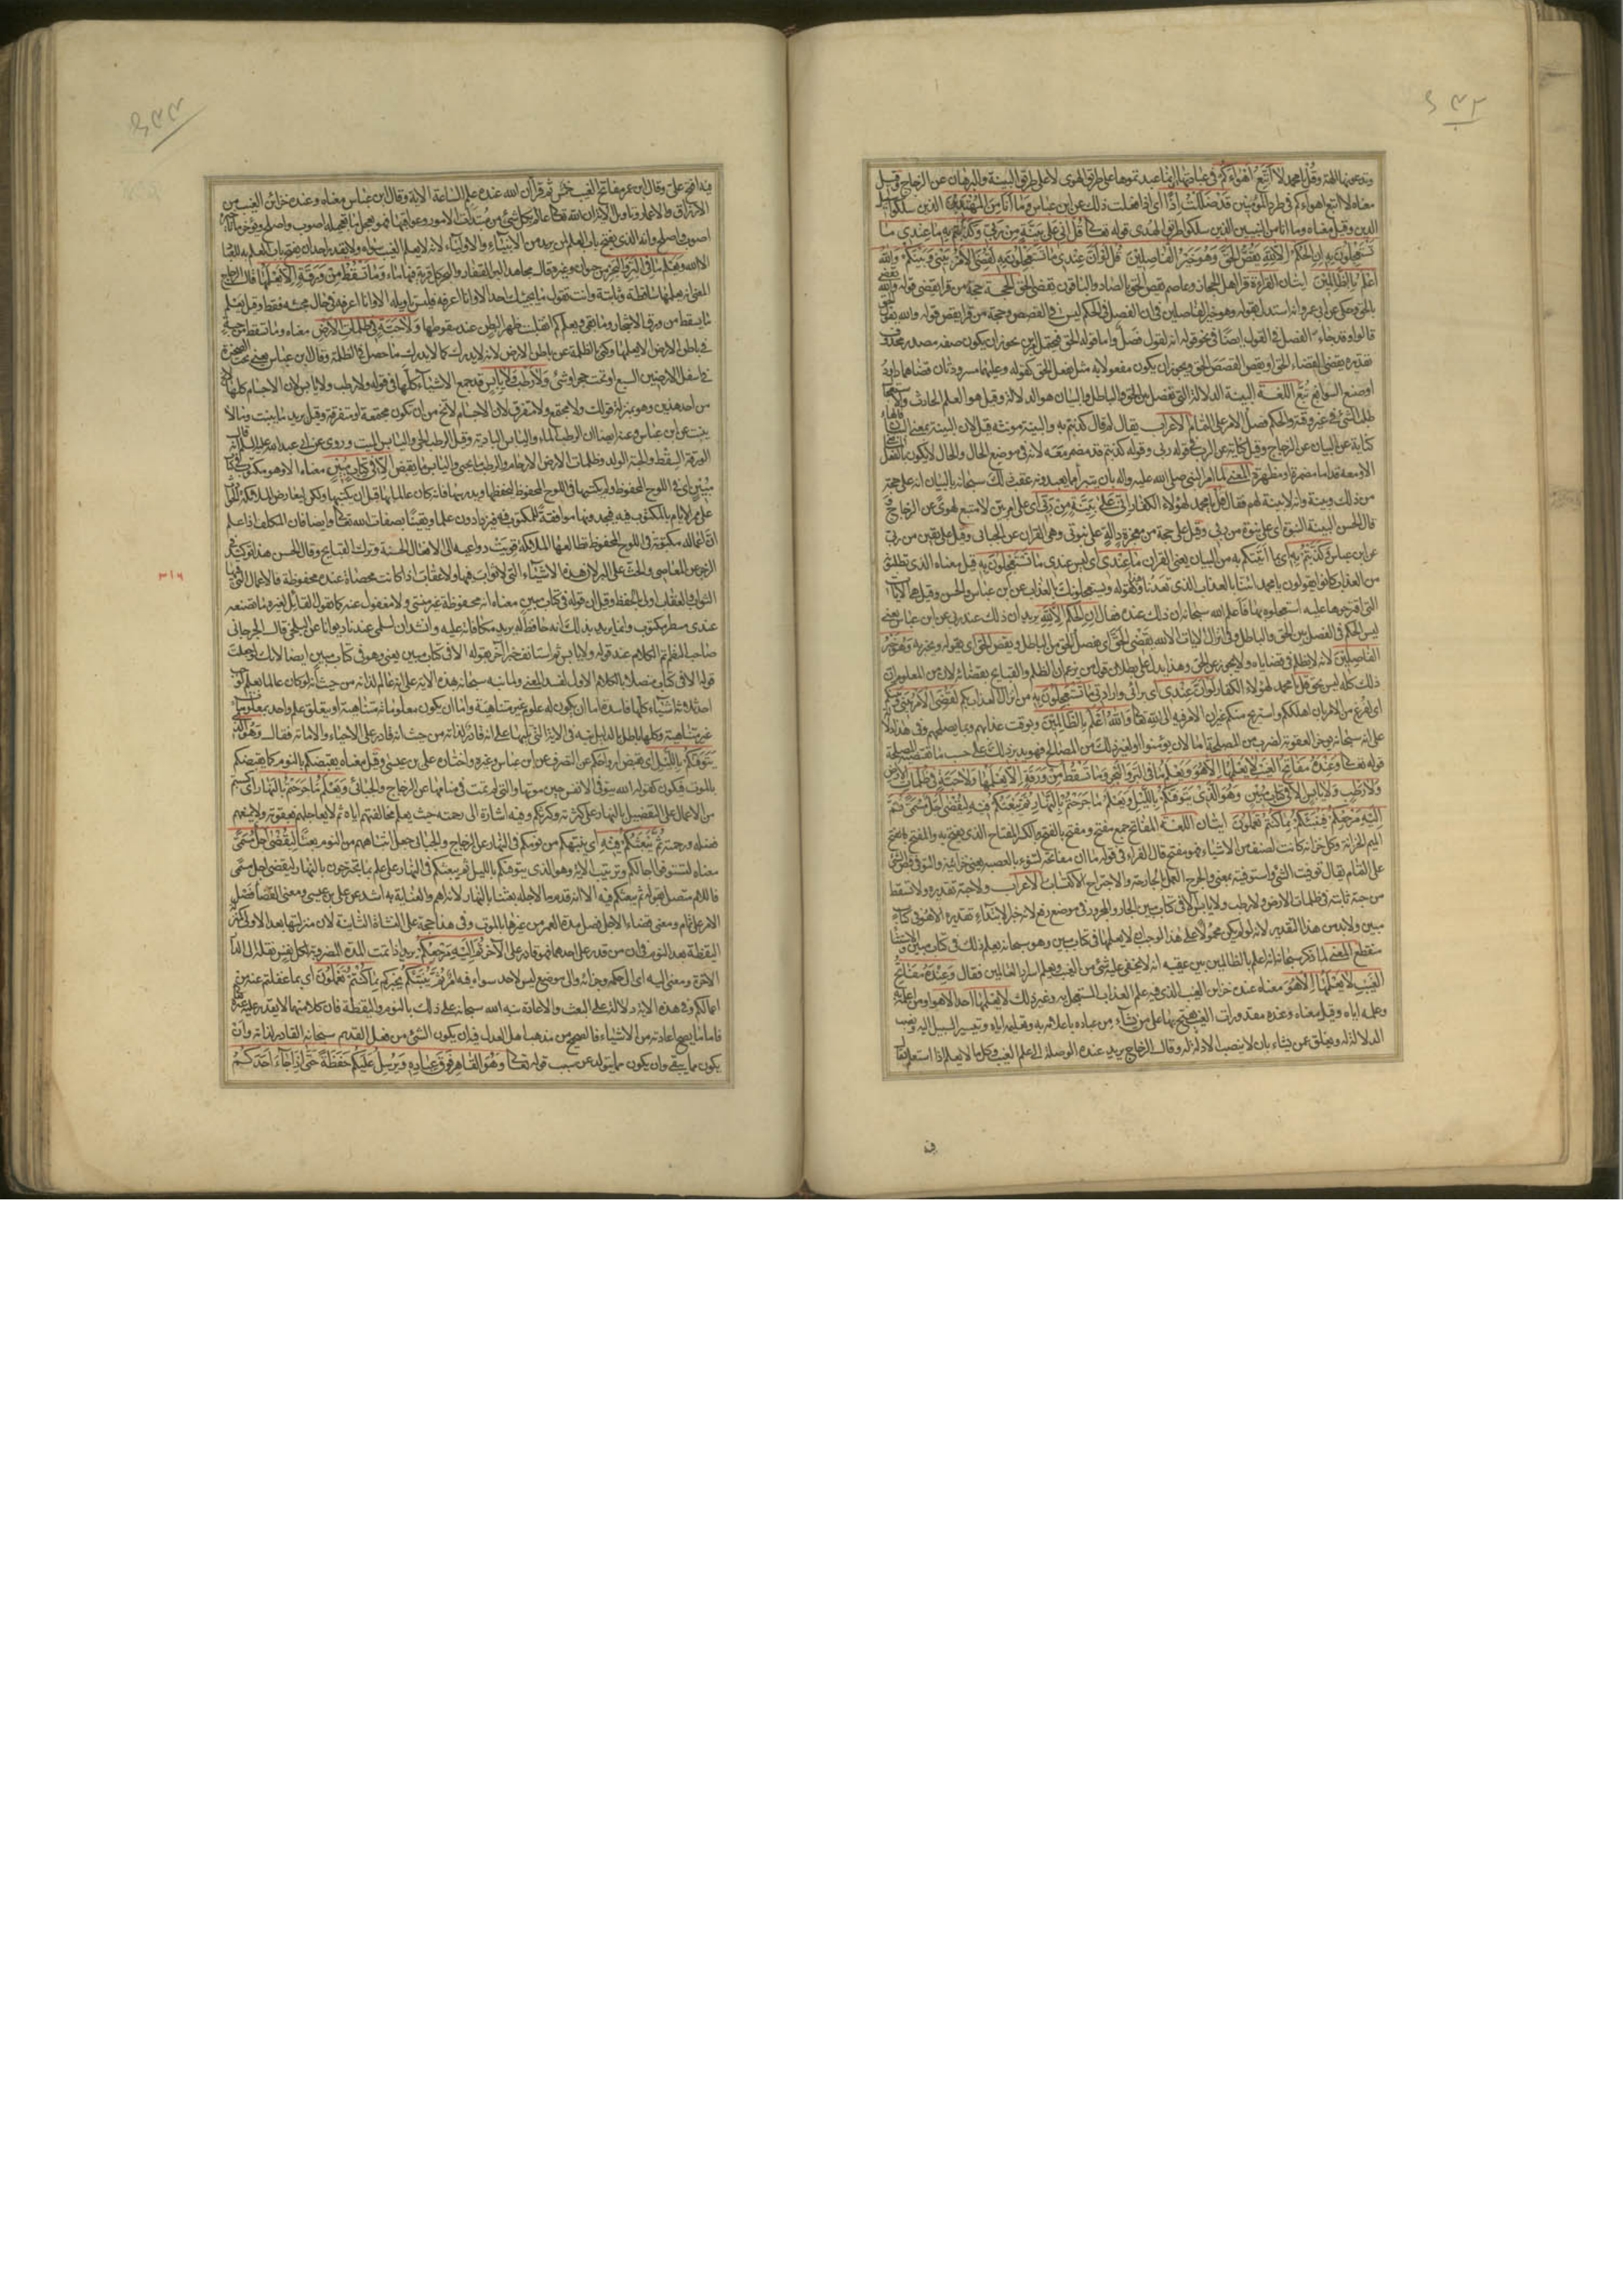 ۶۴۲
ودعوتموها الهة وقل يا محمد لا اتبع اهواءكم في عبادتها اي انما عبدتموها على طريق الهوى لا على طريق البينة والبرهان عن الزجاج وقيل
معناه لا اتبع اهواءكم في طرد المؤمنين قد ضللت اذا اي ان انا فعلت ذلك عن ابن عباس وما انا من المهتدين الذين سلكوا سبيل
الدين وقيل معناه وما انا من النبيين الذين سلكوا طريق الهدى قوله تعالى قل اني على بينة من ربي وكذبتم به ما عندي ما
تستعجلون به ان الحكم الا لله يقص الحق وهو خير الفاصلين قل لو ان عندي ما تستعجلون به لقضي الامر بيني وبينكم والله
اعلم بالظالمين ايتان القراءة قرا اهل الحجاز وعاصم يقص الحق بالصاد والباقون يقضي الحق الحجة حجة من قرا يقضي قوله والله يقضي
بالحق وحكى عن ابي عمرو انه استدل بقوله وهو خير الفاصلين في ان الفصل في الحكم ليس في القصص وحجة من قرا يقص قوله والله يقول الحق
قالوا وقد جاء الفصل في القول ايضا في نحو قوله انه لقول فصل واما قوله الحق فيحتمل امرين يجوز ان يكون صفة مصدر محذوف
تقديره يقضي القضاء الحق او يقص القصص الحق ويجوز ان يكون مفعولا به مثل يفعل الحق كقوله وعليهما مسرودتان قضاهما داود
او صنع السوابغ تبع اللغة البينة الدلالة التي تفصل بين الحق والباطل والبيان هو الدلالة وقيل هو العلم الحادث والاستعجال
طلب الشيء في غير وقته والحكم فصل الامر على التمام الاعراب يقال لم قال كذبتم به والبينة مونثة قيل لان البينة بمعنى البيان فالهاء
كناية عن البيان عن الزجاج وقيل كناية عن الرب في قوله ربي وقوله كذبتم قد مضمرة معه لانه في موضع الحال والحال لا يكون بالفعل الماضي
الا ومعه قد اما مضمرة او مظهرة المعنى لما امر النبي صلى الله عليه واله بان يتبرا مما يعبدونه عقب ذلك سبحانه بالبيان انه على حجة
من ذلك وبينة وانه لا بينة لهم فقال قل يا محمد لهؤلاء الكفار اني على بينة من ربي اي على امر بين لا متبع لهوى عن الزجاج
قال الحسن البينة النبوة اي على نبوة من ربي وقيل على حجة من معجزة دالة على نبوتي وهي القران عن الجبائي وقيل على يقين من ربي
عن ابن عباس وكذبتم به اي بما اتيتكم به من البيان يعني القران ما عندي اي ليس عندي ما تستعجلون به قيل معناه الذي تطلبونه
من العذاب كانوا يقولون يا محمد ائتنا بالعذاب الذي تعدنا وكقوله ويستعجلونك بالعذاب عن ابن عباس والحسن وقيل هي الايات
التي اقترحوها عليه استعجلوه بها فاعلم الله سبحانه ان ذلك عنده فقال ان الحكم الا لله يريد ان ذلك عند ربي عن ابن عباس يعني
ليس الحكم في الفصل بين الحق والباطل وفي انزال الايات الا لله يقضي الحق اي يفصل الحق من الباطل ويقص الحق اي يقوله ويخبر به وهو خير
الفاصلين لانه لا يظلم في قضاياه ولا يجوز عن الحق وهذا يدل على بطلان قول من يزعم ان الظلم والقبايح بقضائه لان من المعلوم ان
ذلك كله ليس بحق قل يا محمد لهؤلاء الكفار لو ان عندي اي برائي وارادتي ما تستعجلون به من انزال العذاب بكم لقضي الامر بيني وبينكم
اي لفرغ من الامر بان اهلككم واستريح منكم غير ان الامر فيه الى الله تعالى والله اعلم بالظالمين وبوقت عذابهم وبما يصلحهم وفي هذا دلالة
على انه سبحانه يوخر العقوبة لضرب من المصلحة اما لان يومنوا او لغير ذلك من المصالح فهو يدبر ذلك على حسب ما تقتضيه المصلحة
قوله تعالى وعنده مفاتح الغيب لا يعلمها الا هو ويعلم ما في البر والبحر وما تسقط من ورقة الا يعلمها ولا حبة في ظلمات الارض
ولا رطب ولا يابس الا في كتاب مبين وهو الذي يتوفيكم بالليل ويعلم ما جرحتم بالنهار ثم يبعثكم فيه ليقضى اجل مسمى ثم
اليه مرجعكم فينبئكم بما كنتم تعملون ايتان اللغة المفاتح جمع مفتح ومفتح بالفتح والكسر المفتاح الذي يفتح به والمفتح بفتح
الميم الخزانة وكل خزانة كانت لصنف من الاشياء فهو مفتح قال الفراء في قوله ما ان مفاتحه لتنوء بالعصبة يعني خزاينه والتوفي قبض الشيء
على التمام يقال توفيت الشيء واستوفيته بمعنى والجرح العمل بالجارحة والاجتراح الاكتساب الاعراب ولا حبة تقديره ولا تسقط
من حبة ثابتة في ظلمات الارض ولا رطب ولا يابس الا في كتاب مبين الجار والمجرور في موضع رفع لانه خبر الابتداء تقديره الا هو في كتاب
مبين ولا بد من هذا التقدير لانه لو لم يكن محمولا على هذا لوجب ان لا يعلمها في كتاب مبين وهو سبحانه يعلم ذلك في كتاب مبين والاستثناء
منقطع المعنى لما ذكر سبحانه انه اعلم بالظالمين بين عقيبه انه لا يخفى عليه شيء من الغيب ويعلم اسرار العالمين فقال وعنده مفاتح
الغيب لا يعلمها الا هو معناه عنده خزاين الغيب الذي فيه علم العذاب المستعجل به وغير ذلك لا يعلمها احد الا هو او من اعلمه به
وعلمه اياه وقيل معناه وعنده مقدورات الغيب يفتح بها على من يشاء من عباده باعلامه به وتعليمه اياه وتيسير السبيل اليه ونصب
الدلالة له ويغلق عمن يشاء بان لا ينصب الادلة له وقال الزجاج يريد عنده الوصلة الى علم الغيب وكل ما لا يعلم اذا استعلم يقال
فيه
۶۴۳
فيه افتح علي وقال ابن عمر مفاتح الغيب خمس ثم قرا ان الله عنده علم الساعة الاية وقال ابن عباس معناه وعنده خزاين الغيب من
الارزاق والاعمار وتاويل الاية ان الله تعالى عالم بكل شيء من مبتدات الامور وعواقبها فهو يعجل ما تعجيله اصوب واصلح ويوخر ما تاخيره
اصوب واصلح وانه الذي يفتح باب العلم لمن يريد من الانبياء والاولياء لانه لا يعلم الغيب سواه ولا يقدر احد ان يفتح باب العلم به للعباد
الا الله ويعلم ما في البر والبحر من حيوان وغيره وقال مجاهد البر القفار والبحر كل قرية فيها ماء وما تسقط من ورقة الا يعلمها قال الزجاج
المعنى انه يعلمها ساقطة وثابتة وانت تقول ما يجيئك احد الا وانا اعرفه فليس تاويله الا وانا اعرفه في حال مجيئه فقط وقيل يعلم
ما يسقط من ورق الاشجار وما بقي ويعلم كم انقلبت ظهر البطن عند سقوطها ولا حبة في ظلمات الارض معناه وما تسقط من حبة
في باطن الارض الا يعلمها وكنى بالظلمة عن باطن الارض لانه لا يدرك كما لا يدرك ما حصل في الظلمة وقال ابن عباس يعني تحت الصخرة
في اسفل الارضين السبع او تحت حجر او شيء ولا رطب ولا يابس قد جمع الاشياء كلها في قوله ولا رطب ولا يابس لان الاجسام كلها لا تخلو
من احد هذين وهو بمنزلة قولك ولا مجتمع ولا مفترق لان الاجسام لا تخلو من ان تكون مجتمعة او متفرقة وقيل يريد ما ينبت وما لا
ينبت عن ابن عباس وعنه ايضا ان الرطب الماء واليابس البادية وقيل الرطب الحي واليابس الميت وروي عن ابي عبد الله عليه السلام قال
الورقة السقط والحبة الولد وظلمات الارض الارحام والرطب ما يحيى واليابس ما يغيض الا في كتاب مبين معناه الا وهو مكتوب في كتاب
مبين اي في اللوح المحفوظ ولم يكتبها في اللوح المحفوظ ليحفظها ويدبرها فانه كان عالما بها قبل ان يكتبها ولكن ليعارض الملائكة الحوادث
على ممر الايام بالمكتوب فيه فيجدونها موافقة للمكتوب فيه فيزدادون علما ويقينا بصفات الله تعالى وايضا فان المكلف اذا علم
ان اعماله مكتوبة في اللوح المحفوظ تطالعها الملائكة قويت دواعيه الى الافعال الحسنة وترك القبايح وقال الحسن هذا توكيد في
الزجر عن المعاصي والحث على البر لان هذه الاشياء التي لا ثواب فيها ولا عقاب اذا كانت محصاة عنده محفوظة فالاعمال التي فيها
الثواب والعقاب اولى بالحفظ وقيل ان قوله في كتاب مبين معناه انه محفوظ غير منسي ولا مغفول عنه كما يقول القائل لغيره ما تصنعه
عندي مسطر مكتوب وانما يريد بذلك انه حافظ له يريد مكافاته عليه وانشد ان لسلمى عندنا ديوانا عن البلخي قال الجرجاني
صاحب النظم تم الكلام عند قوله ولا يابس ثم استانف خبرا آخر بقوله الا في كتاب مبين يعني وهو في كتاب مبين ايضا لانك لو جعلت
قوله الا في كتاب متصلا بالكلام الاول لفسد المعنى ولما نبه سبحانه بهذه الاية على انه عالم لذاته من حيث انه لو كان عالما بعلم لوجب
احد ثلاثة اشياء كلها فاسدة اما ان يكون له علوم غير متناهية واما ان يكون معلوماته متناهية او يتعلق علم واحد بمعلومات
غير متناهية وكلها باطل بالدليل نبه في الاية التي تليها على انه قادر لذاته من حيث انه قادر على الاحياء والاماتة فقال وهو الذي
يتوفيكم بالليل اي يقبض ارواحكم عن التصرف عن ابن عباس وغيره واختاره علي بن عيسى وقيل معناه يقبضكم بالنوم كما يقبضكم
بالموت فيكون كقوله الله يتوفى الانفس حين موتها والتي لم تمت في منامها عن الزجاج والجبائي ويعلم ما جرحتم بالنهار اي كسبتم
من الاعمال على التفصيل بالنهار على كثرته وكثرتكم وفيه اشارة الى رحمته حيث يعلم مخالفتهم اياه ثم لا يعاجلهم بعقوبة ولا يمنعهم
فضله ورحمته ثم يبعثكم فيه اي ينبهكم من نومكم في النهار عن الزجاج والجبائي جعل انتباههم من النوم بعثا ليقضى اجل مسمى
معناه لتستوفوا اجالكم وترتيب الاية وهو الذي يتوفيكم بالليل ثم يبعثكم في النهار على علم بما تجترحون بالنهار ليقضى اجل مسمى
فاللام متصل بقوله ثم يبعثكم فيه الا انه قدم ما الاجله بعثنا بالنهار لانه اهم والعناية به اشد عن علي بن عيسى ومعنى القضاء فصل
الامر على تمام ومعنى قضاء الاجل فصل مدة العمر من غيرها بالموت وفي هذا حجة على النشاة الثانية لان منزلتها بعد الاولى كمنزلة
اليقظة بعد النوم في ان من قدر على احدهما فهو قادر على الآخر ثم اليه مرجعكم يريد اذا تمت المدة المضروبة لكل نفس نقله الى الدار
الآخرة ومعنى اليه اي الى حكمه وجزائه والى موضع ليس لاحد سواه فيه امر ثم ينبئكم يخبركم بما كنتم تعملون اي بما غفلتم عنه من
اعمالكم وفي هذه الاية دلالة على البعث والاعادة نبه الله سبحانه على ذلك بالنوم واليقظة فان كلا منهما لا يقدر عليه غيره
فاما ما يصح اعادته من الاشياء فالصحيح من مذهب اهل العدل فيه ان يكون الشيء من فعل القديم سبحانه القادر لذاته وان
يكون مما يبقى وان يكون مما يتولد عن سبب قوله تعالى وهو القاهر فوق عباده ويرسل عليكم حفظة حتى اذا جاء احدكم
۳۱۶